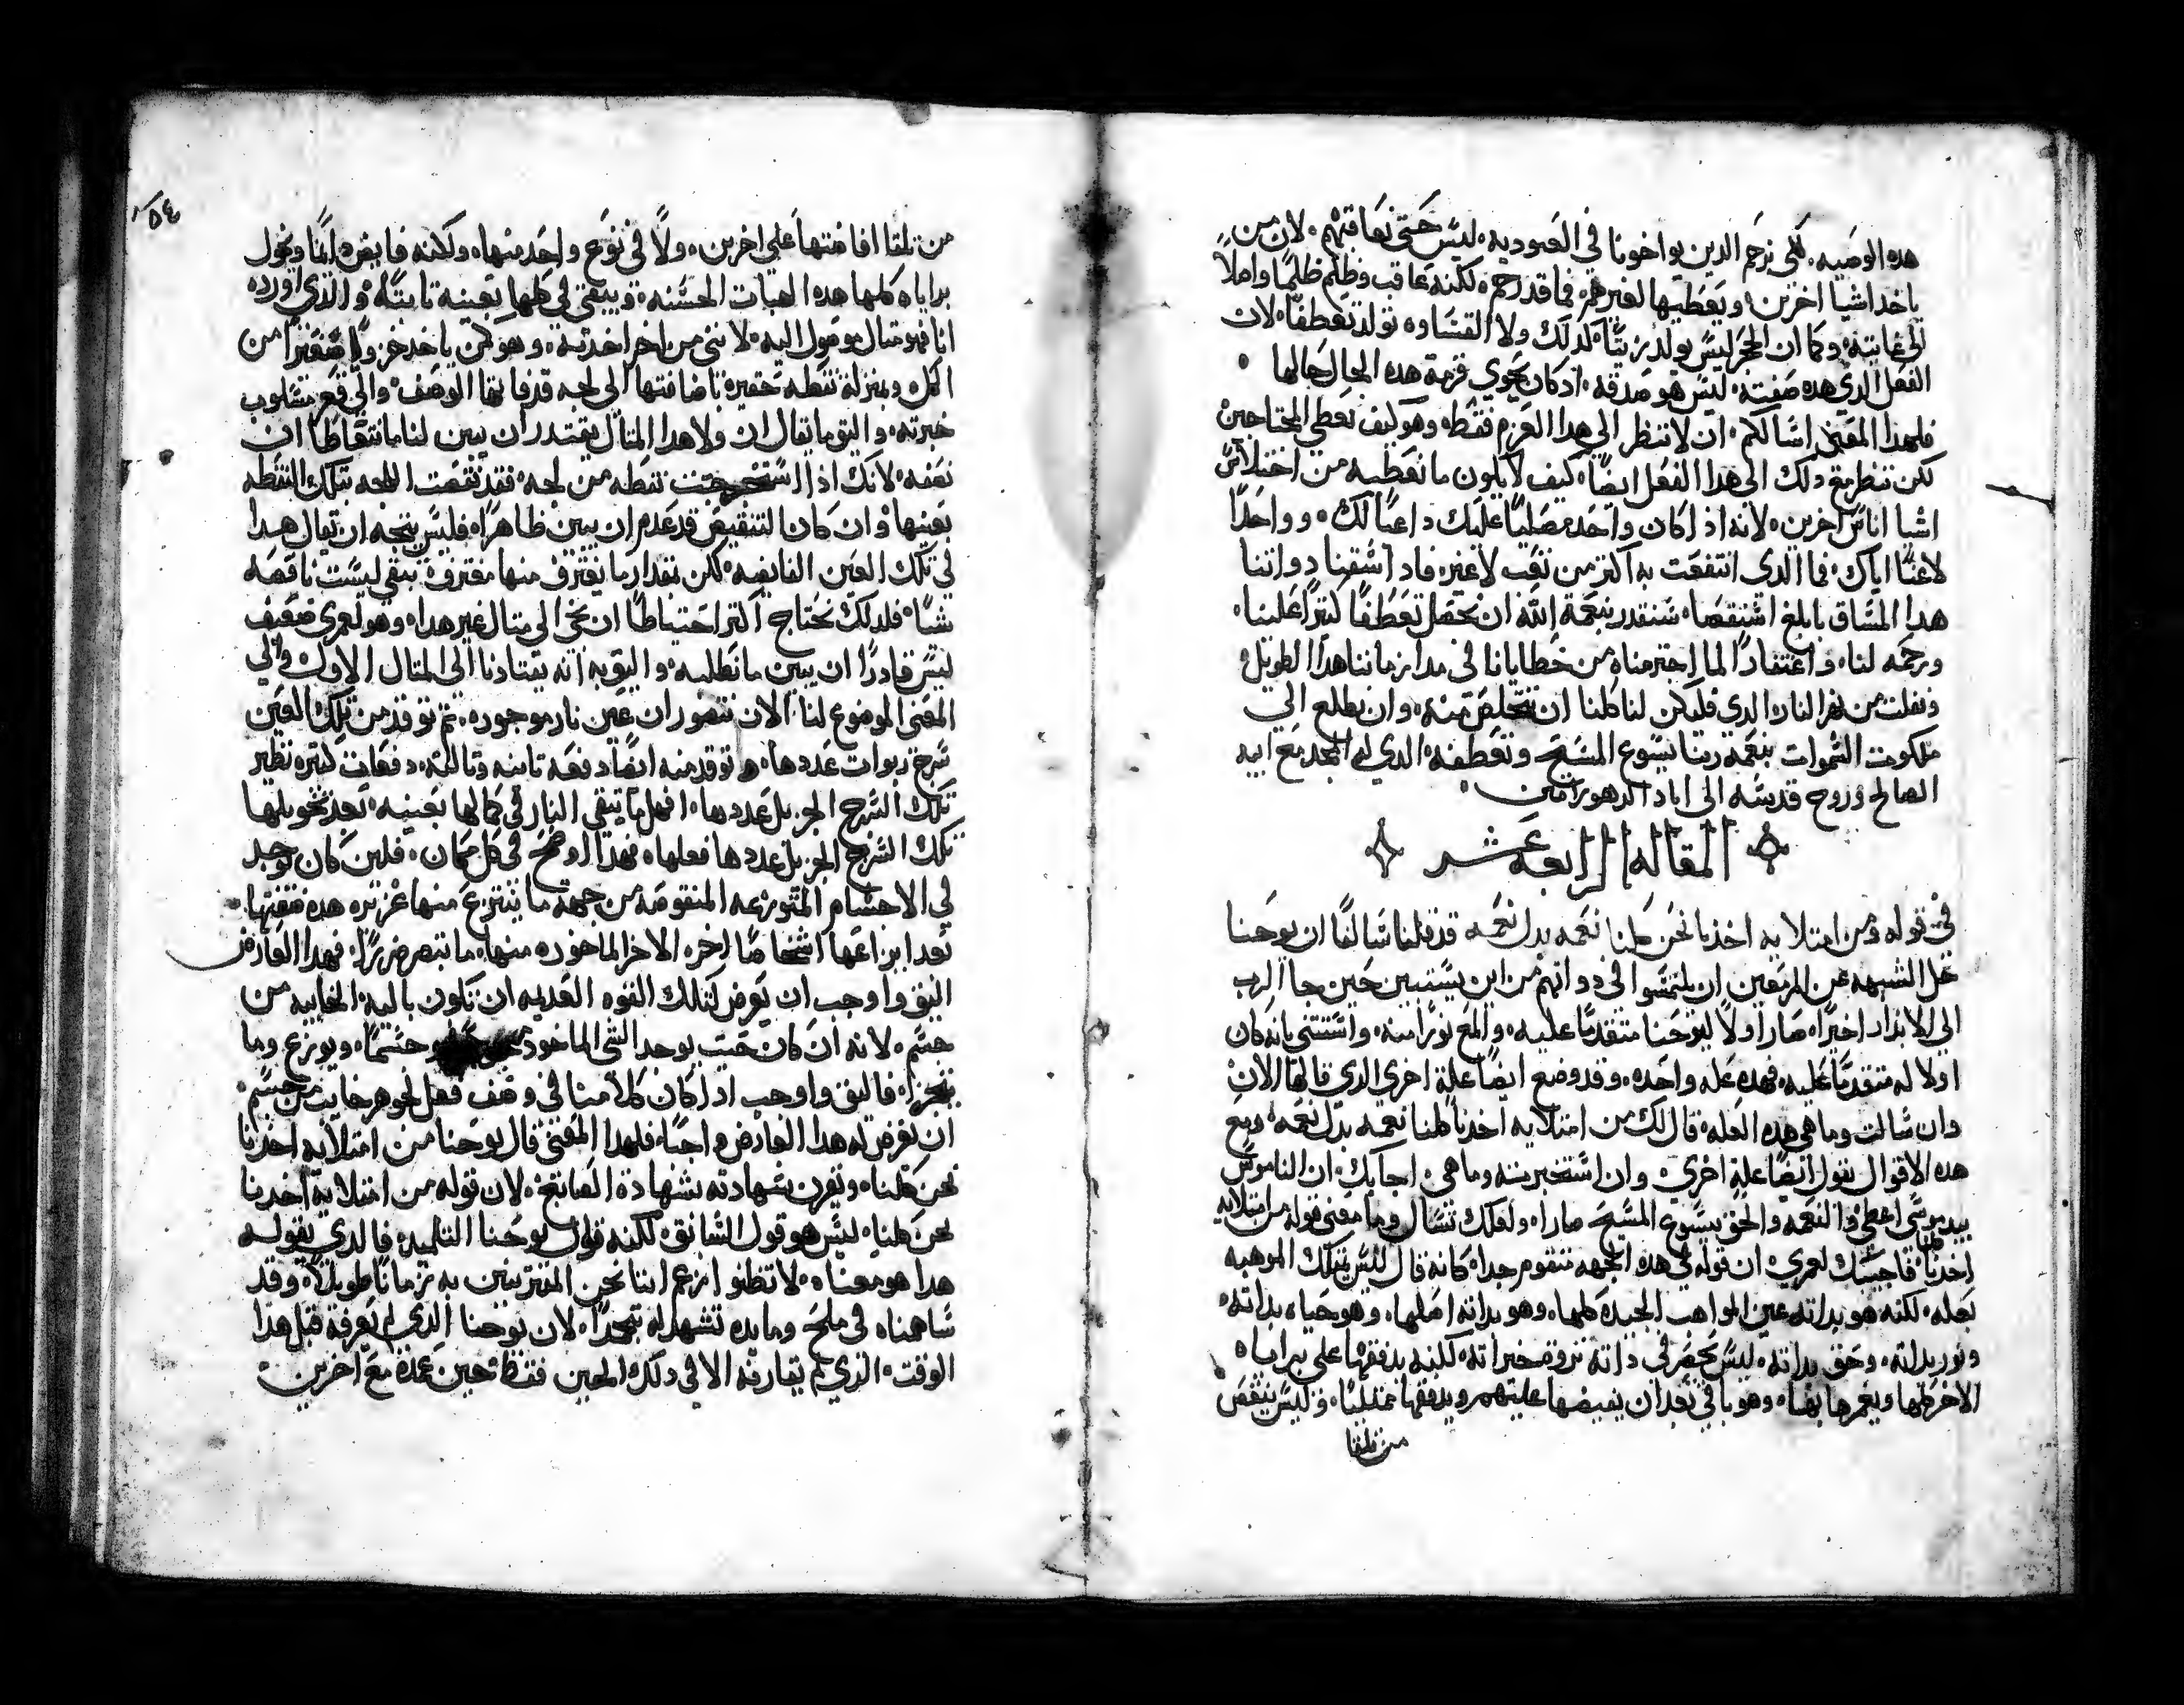 هده الوصيه. لكي نرحم الدين يواخونا في العبوديه. ليس حتى نعاقبهم. لان من
ياخد اشيا اخرين. ويعطيها لغيرهم. فما قد رحم. لكنه عاقب وظلم ظلمًا واصلاً
الى غايته. وكما ان الحجر ليس يولد زيتًا. لدلك ولا القساوه تولد تعطفًا. لان
الفعل الدي هده صفته. ليس هو صدقه. اد كان يحوي قزمة هده الحال حالها
فلهدا المعنى اسالكم. ان لا ننظر الي هدا العزم فقط. وهو كيف نعطي المحتاجين
لكن ننظر مع دلك الى هدا الفعل ايضًا. كيف لا يكون ما نعطيه من اختلاس
اشيا اناس اخرين. لانه ادا كان واحد مصليًا عليك داعيًا لك. وواحدًا
لاعنًا اياك. فما الدي انتفعت به اكتر من تعب لا غير. فادا شقنا دواتنا
هدا المساق بابلغ اشتقصا. سنقدر بنعمة الله ان نحصل تعطفًا كتيرًا علينا.
ورحمه لنا. واغتفارًا لما اجترمناه من خطايانا في مدا زماننا هدا الطويل
ونفلت من نهر النار. الدي فليكن لنا كلنا ان نتخلص منه. وان نطلع الي
ملكوت السموات بنعمة ربنا يسوع المسيح وتعطفه. الدي له المجد مع ابيه
الصالح وروح قدسه الى اباد الدهور امين.
المقاله الرابعة عشر
في قوله ومن امتلايه اخدنا نحن كلنا نعمه بدل نعمه قد قلنا سالفًا ان يوحنا
حل الشبهه عن المزمعين ان يلتمسوا في دواتهم من اين يستبين حين جا الرب
الى الاندار اخيرًا. صار اولاً ليوحنا متقدمًا عليه. والمع نورًا منه. واستتنى بانه كان
اولا له متقدمًا عليه. فهده عله واحده. وقد وضع ايضًا علة اخرى الدي قالها الان
وان سالت وما هي هده العله. قال لك من امتلايه اخدنا كلنا نعمه بدل نعمه. ومع
هده الاقوال يقول ايضًا علة اخري. وان استخبرته وما هي. اجابك ان الناموس
بيد موسى اعطي. والنعمه والحق بيسوع المسيح صارا. ولعلك تسال وما معنى قوله من امتلايه
اخدنا كلنا. فاجيبك لعمري ان قوله في هده الجهه متقوم جدا. كانه قال ليس يمتلك الموهبه
بجعله. لكنه هو بداته عين المواهب الجيده كلها. وهو بداته اصلها. وهو حياه بداته.
ونور بداته. وحق بداته. ليس يحصر في داته تروة خيراته. لكنه يدفقها على براياه
الاخر كلها ويغمرها بها. وهو باقي بعد ان يفيضها عليهم ويدفقها ممتليًا. وليس ينقص
من تلقا
من تلقا افاضتها على اخرين. ولا في نوع واحد منها. ولكنه فايض دايمًا ويخول
براياه كلها هده الهبات الحسنه. ويبقى في كلها بعينه تابتًا. والدي اورده
انا فهو متال موصول اليه. لانني من اخر اخدته. وهو كمن ياخد جزوًا صغيرًا من
الكل. وبمنزلة نقطه حقيره باضافتها الى لجه قد فاتها الوصف. والي قعر مسلوب
خبرته. واليق ما يقال ان ولا هدا المتال يقتدر ان يبين لنا ما نتعاطا ان
نصفه. لانك ادا استخرجت نقطه من لجه. فقد نقصت اللجه بتلك النقطه
بعينها. وان كان التنقيص قد عدم ان يبين ظاهرًا. فليس يتجه ان يقال هدا
في تلك العين الفايضه. لكن بقدار ما يغترف منها مغترف. يبقى ليست ناقصه
شيًا. فلدلك نحتاج اكتر احتياطًا ان نجي الى متال غير هدا. وهو لعمري ضعيف
ليس قادرًا ان يبين ما نطلبه. واليق به انه يقتادنا الى المتال الاول وفي
المعنى الموضوع لنا. الان نتصور ان عين نار موجوده. تم توقد من تلك العين
سرج ربوات عددها. وتوقد منه ايضًا دفعه تانيه وتالته. دفعات كتيره نظير
تلك السرج الجزيل عددها. افهل ما تبقى النار في كمالها بعينه. بعد تخويلها
تلك السرج الجزيل عددها فعلها. فهدا اوضح في كل مكان. فلين كان يوجد
في الاجسام المتوزعه المنقوصه من جهة ما ينتزع منها غزيره هده صفتها.
بعد ابزاعها اشخاصًا اخره الاخر الماخوده منها. ما تبصر ضررًا. فهدا العارض
اليق واوجب ان يعرض لتلك القوه العديمه ان تكون باليه. الخاليه من
جسم. لانه ان كان حيت يوجد الشي الماخود جوهرًا وجسمًا. ويوزع وما
يتجزا. فاليق واوجب ادا كان كلامنا في وصف فعل لجوهر خايب من جسم.
ان يعرض له هدا العارض واجبًا. فلهدا المعنى قال يوحنا من امتلايه اخدنا
نحن كلنا. ويقرن شهادته بشهادة الصابغ. لان قوله من امتلايه اخدنا
نحن كلنا. ليس هو قول السابق. لكنه قول يوحنا التلميد. فالدي يقوله
هدا هو معناه. لا تظنوا زعم اننا نحن المقتربين به زمانًا طويلاً. وقد
ساهمناه في ملح ومايده نشهد له بتمجد. لان يوحنا الدي لم يعرفه قبل هدا
الوقت. الدي لم يقارفه الا في دلك الحين فقط. حين عمده مع اخرين